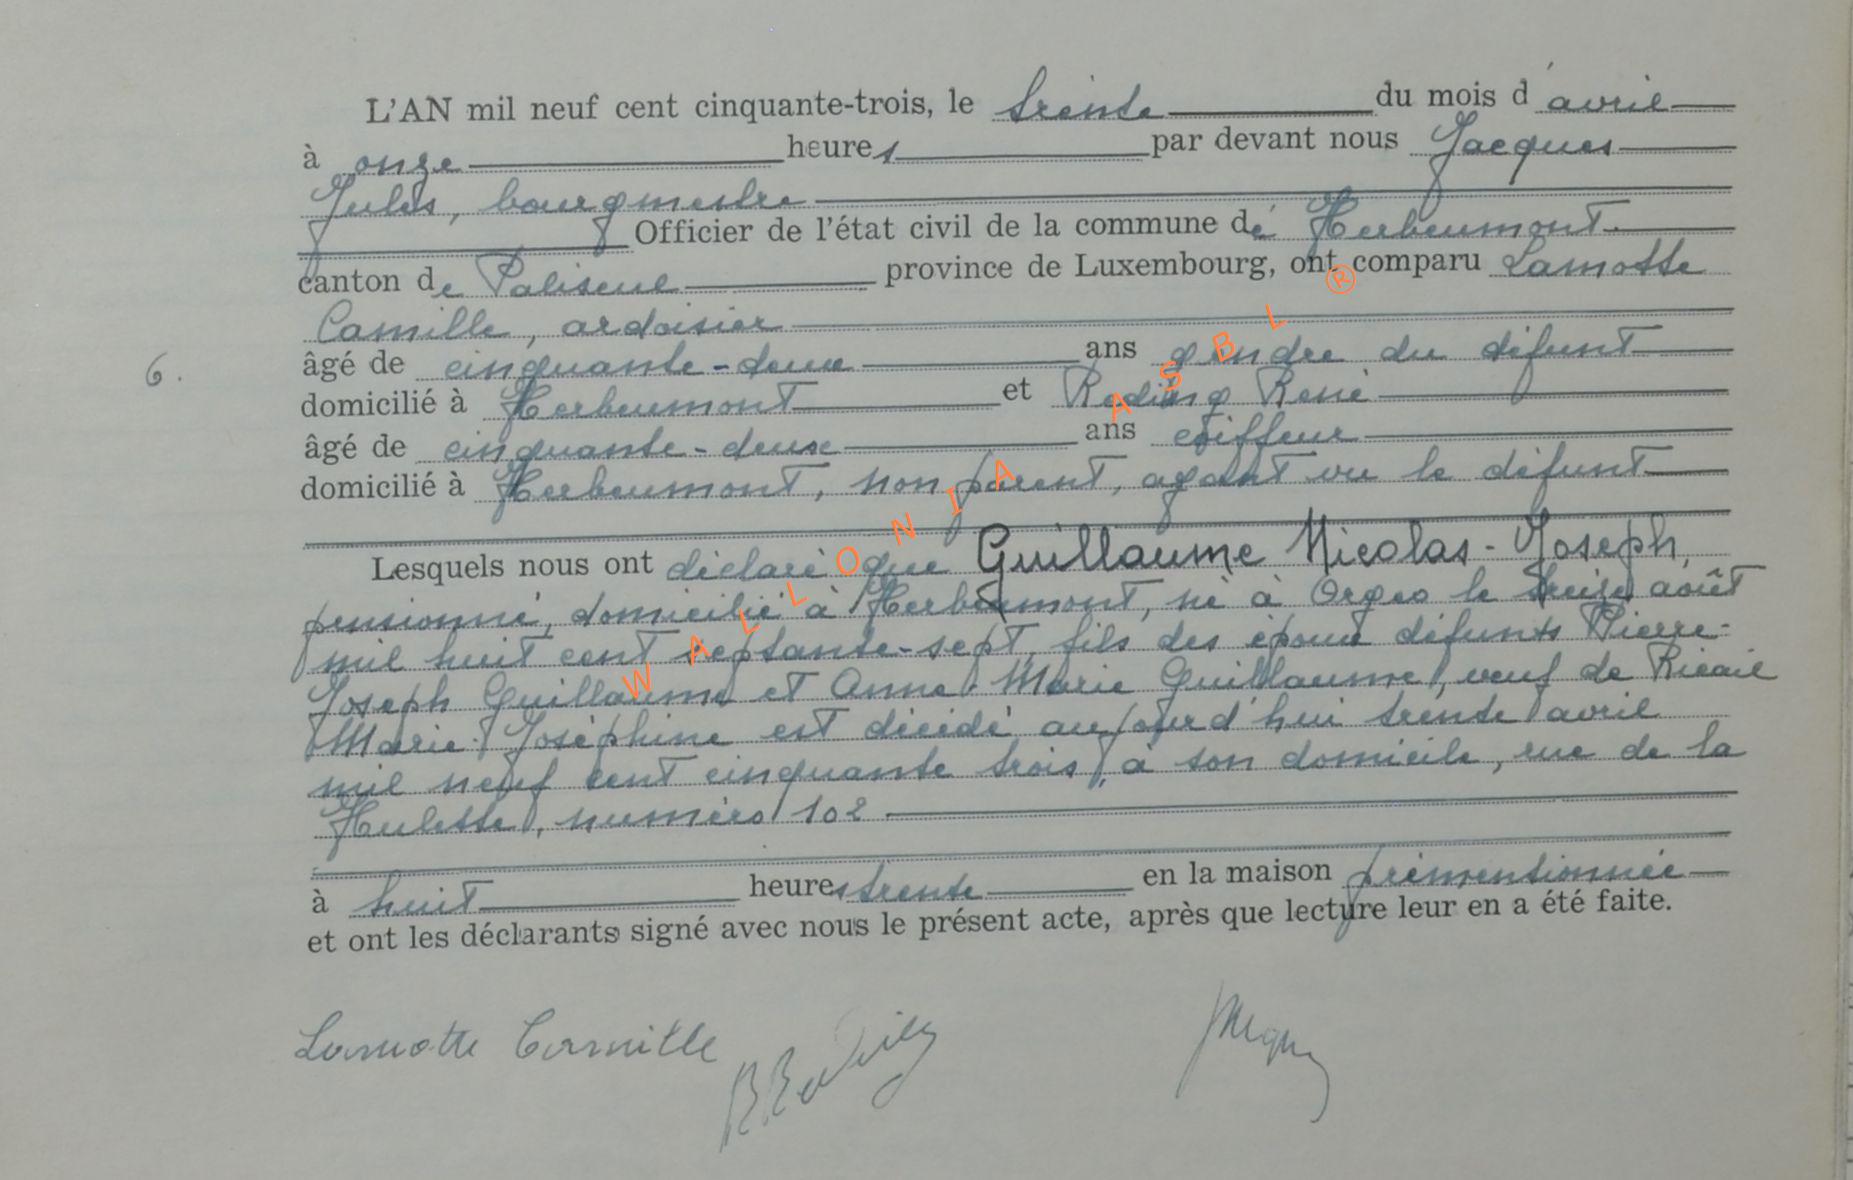 L'AN mil neuf cent cinquante-trois, le trente du mois d'avril
à onze heures par devant nous Jacques
Jules, bourgmestre
Officier de l'état civil de la commune de Herbeumont
canton de Paliseul province de Luxembourg, ont comparu Lamotte
Camille, ardoisier
âgé de cinquante-deux ans gendre du défunt
6.
domicilié à Herbeumont et Roding René
âgé de cinquante-deux ans coiffeur
domicilié à Herbeumont, non parent, ayant vu le défunt
Lesquels nous ont déclaré que Guillaume Nicolas-Joseph,
pensionné, domicilié à Herbeumont, né à Orgeo le treize août
mil huit cent septante-sept, fils des époux défunts Pierre-
Joseph Guillaume et Anne-Marie Guillaume, veuf de Ricail
Marie-Joséphine est décédé aujourd'hui trente avril
mil neuf cent cinquante trois, à son domicile, rue de la
Hulette, numéro 102
à huit heures trente en la maison prémentionnée
et ont les déclarants signé avec nous le présent acte, après que lecture leur en a été faite.
Lamotte Camille
WALLONIA ASBL ®